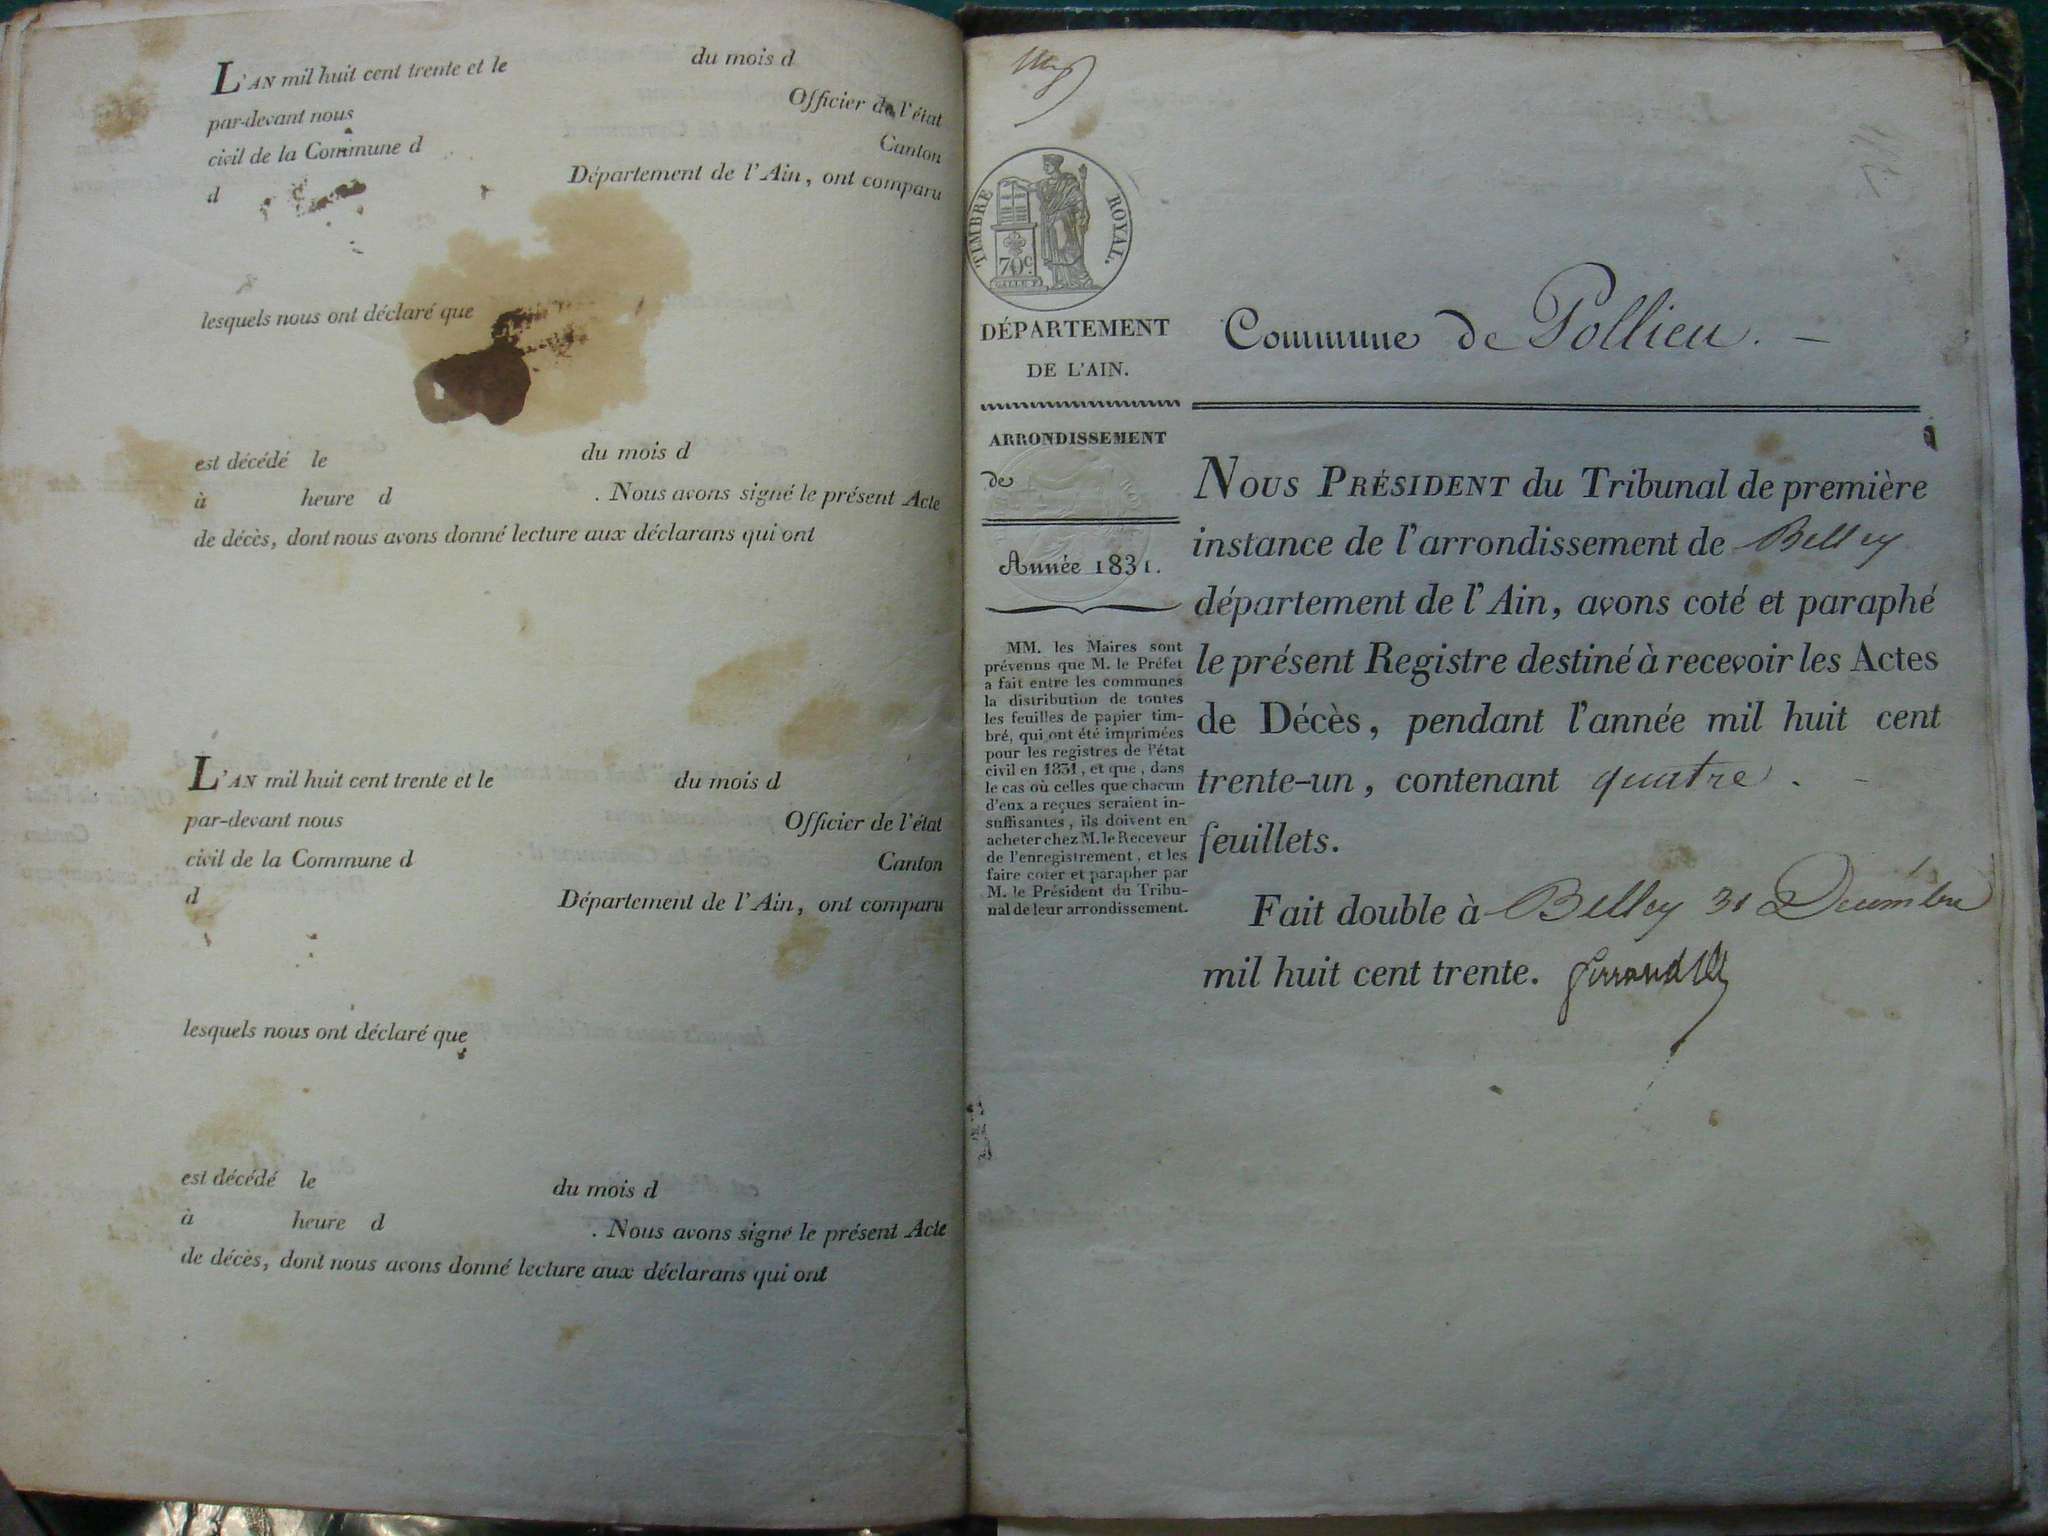 L'AN mil huit cent trente et le du mois d
par-devant nous Officier de l'état
civil de la Commune d Canton
d Département de l'Ain, ont comparu
lesquels nous ont déclaré que
est décédé le du mois d
à heure d . Nous avons signé le présent Acte
de décès, dont nous avons donné lecture aux déclarans qui ont
L'AN mil huit cent trente et le du mois d
par-devant nous Officier de l'état
civil de la Commune d Canton
d Département de l'Ain, ont comparu
lesquels nous ont déclaré que
est décédé le du mois d
à heure d . Nous avons signé le présent Acte
de décès, dont nous avons donné lecture aux déclarans qui ont
TIMBRE ROYAL.
70c.
DÉPARTEMENT
DE L'AIN.
ARRONDISSEMENT
de
Année 1831.
MM. les Maires sont
prévenus que M. le Préfet
a fait entre les communes
la distribution de toutes
les feuilles de papier tim-
bré, qui ont été imprimées
pour les registres de l'état
civil en 1831, et que, dans
le cas où celles que chacun
d'eux a reçues seraient in-
suffisantes, ils doivent en
acheter chez M. le Receveur
de l'enregistrement, et les
faire coter et parapher par
M. le Président du Tribu-
nal de leur arrondissement.
Commune de Pollieu. —
NOUS PRÉSIDENT du Tribunal de première
instance de l'arrondissement de Belley
département de l'Ain, avons coté et paraphé
le présent Registre destiné à recevoir les Actes
de Décès, pendant l'année mil huit cent
trente-un, contenant quatre. —
feuillets.
Fait double à Belley 31 Decembre
mil huit cent trente.